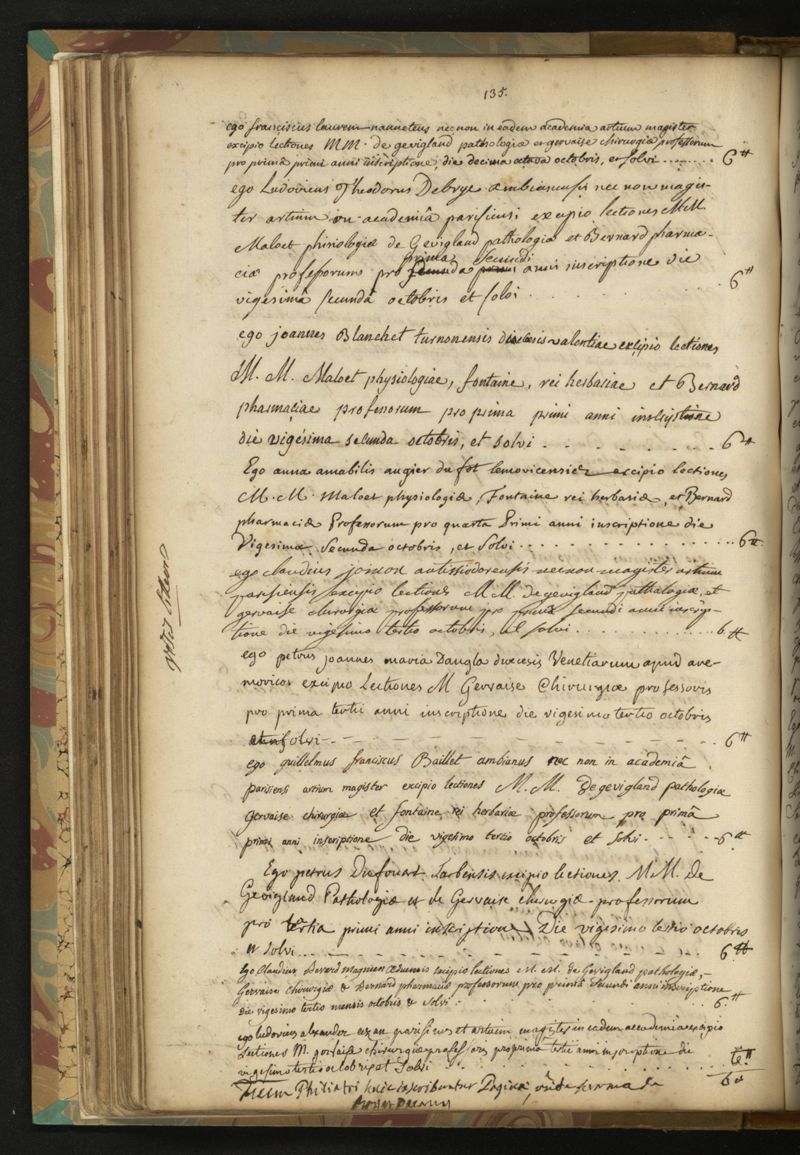 135.
ego franciscus laurem nanneteus necnon in eadem academia artium magister
excipio lectiones MM. de gevigland pathologiæ et gervaise chirurgiæ professorum
pro primâ primi anni inscriptione, die decima octava octobris, et solvi ........ 6tt
ego Ludovicus Theodorus Debrye ambianensis nec non magis-
ter artium in academiâ parisiensi excipio lectiones MM
Maloet phisiologiæ de Gevigland pathologiæ et Bernard pharma-
prima secundi
ciæ professorums pro anni inscriptione die
vigesimâ secundâ octobris et solvi . . . . . . . 6tt
ego joannes Blanchet turnonensis diœcesis valentiae excipio lectiones
M. M. Maloet physiologiae, fontaine, rei herbariae et Bernard
pharmaciae professorum pro prima primi anni inscriptione
die vigésima secunda octobris, et solvi . - - - - - - - - 6tt
Ego anna amabilis augier du fot lemovicensis excipio lectiones
M. M. Maloet physiologiæ, Fontaine rei herbariæ, et Bernard
pharmaciæ Professorum pro quarta Primi anni inscriptione die
Vigesima Secunda octobris, et Solvi . . . . . . . . . . . . . . . . 6tt.
ego claudius autissiodorensis necnon magister artium
parisiensis excipio lectiones MM. de gevigland pathalogiæ, et
gervaise chirurgiæ professorum pro prima secundi anni inscrip-
tione die vigesimo tertio octobris, et solvi . . . . . . . . . . . . . 6tt
ego petrus joannes maria Dangla diœcesis Venetiarum apud are-
moricos excipio Lectiones M Gervaise Chirurgiæ professoris
pro prima tertii anni inscriptione die vigesimo tertio octobris
solvi - . - - - - - - - - - - - - - 6tt
ego guillelmus franciscus Baillet ambianus nec non in academiâ
parisensi artium magister excipio lectiones M. M. De gevigland pathologiæ
gervaise chirurgiæ et fontaine rei herbariæ professorum pro primâ
primi anni inscriptione die vigesimo tertio octobris et solvi - - - - - - 6tt
Ego petrus Dufouart Tarbensis excipio lectiones M. M. De
Gevigland Pathologiæ et de Gervaise chirurgiæ professorum
pro tertia primi anni inscriptione Die vigesimo tertio octobris
et solvi . . . . . . . . . . . . . . 6tt
Ego Claudius magnien æduensis excipio lectiones M. M. de Gevigland pathologiæ,
Gervaise chirurgiæ & Bernard pharmaciæ professorum pro prima secundi anni inscriptione
die vigesimo tertio mensis octobris & solvi . . . . . . . . . 6tt
ego ludovicus alexander parisinus et artium magister in eadem accademia excipio
Lectiones M. chirurgiæ professoris pro primo tertii anni inscriptione die
vigesimo tertio octobris et solvi . . . . . . . . . . . .
Philiatri huic inscribuntur Paginæ, unde summa 60